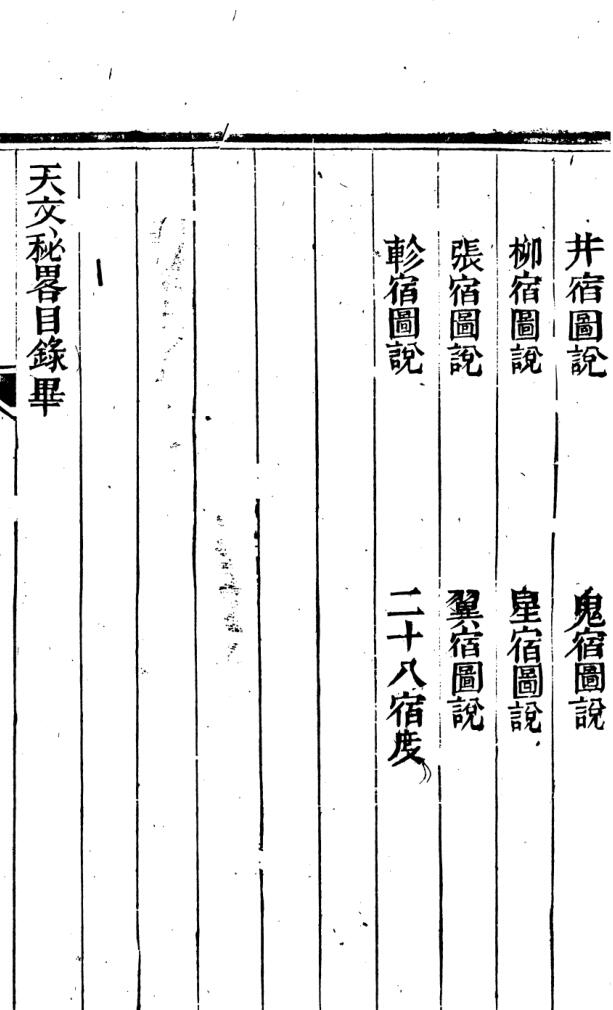 井宿圖說　鬼宿圖說
柳宿圖說　星宿圖說
張宿圖說　翼宿圖說
軫宿圖說　二十八宿度
天文秘畧目錄畢